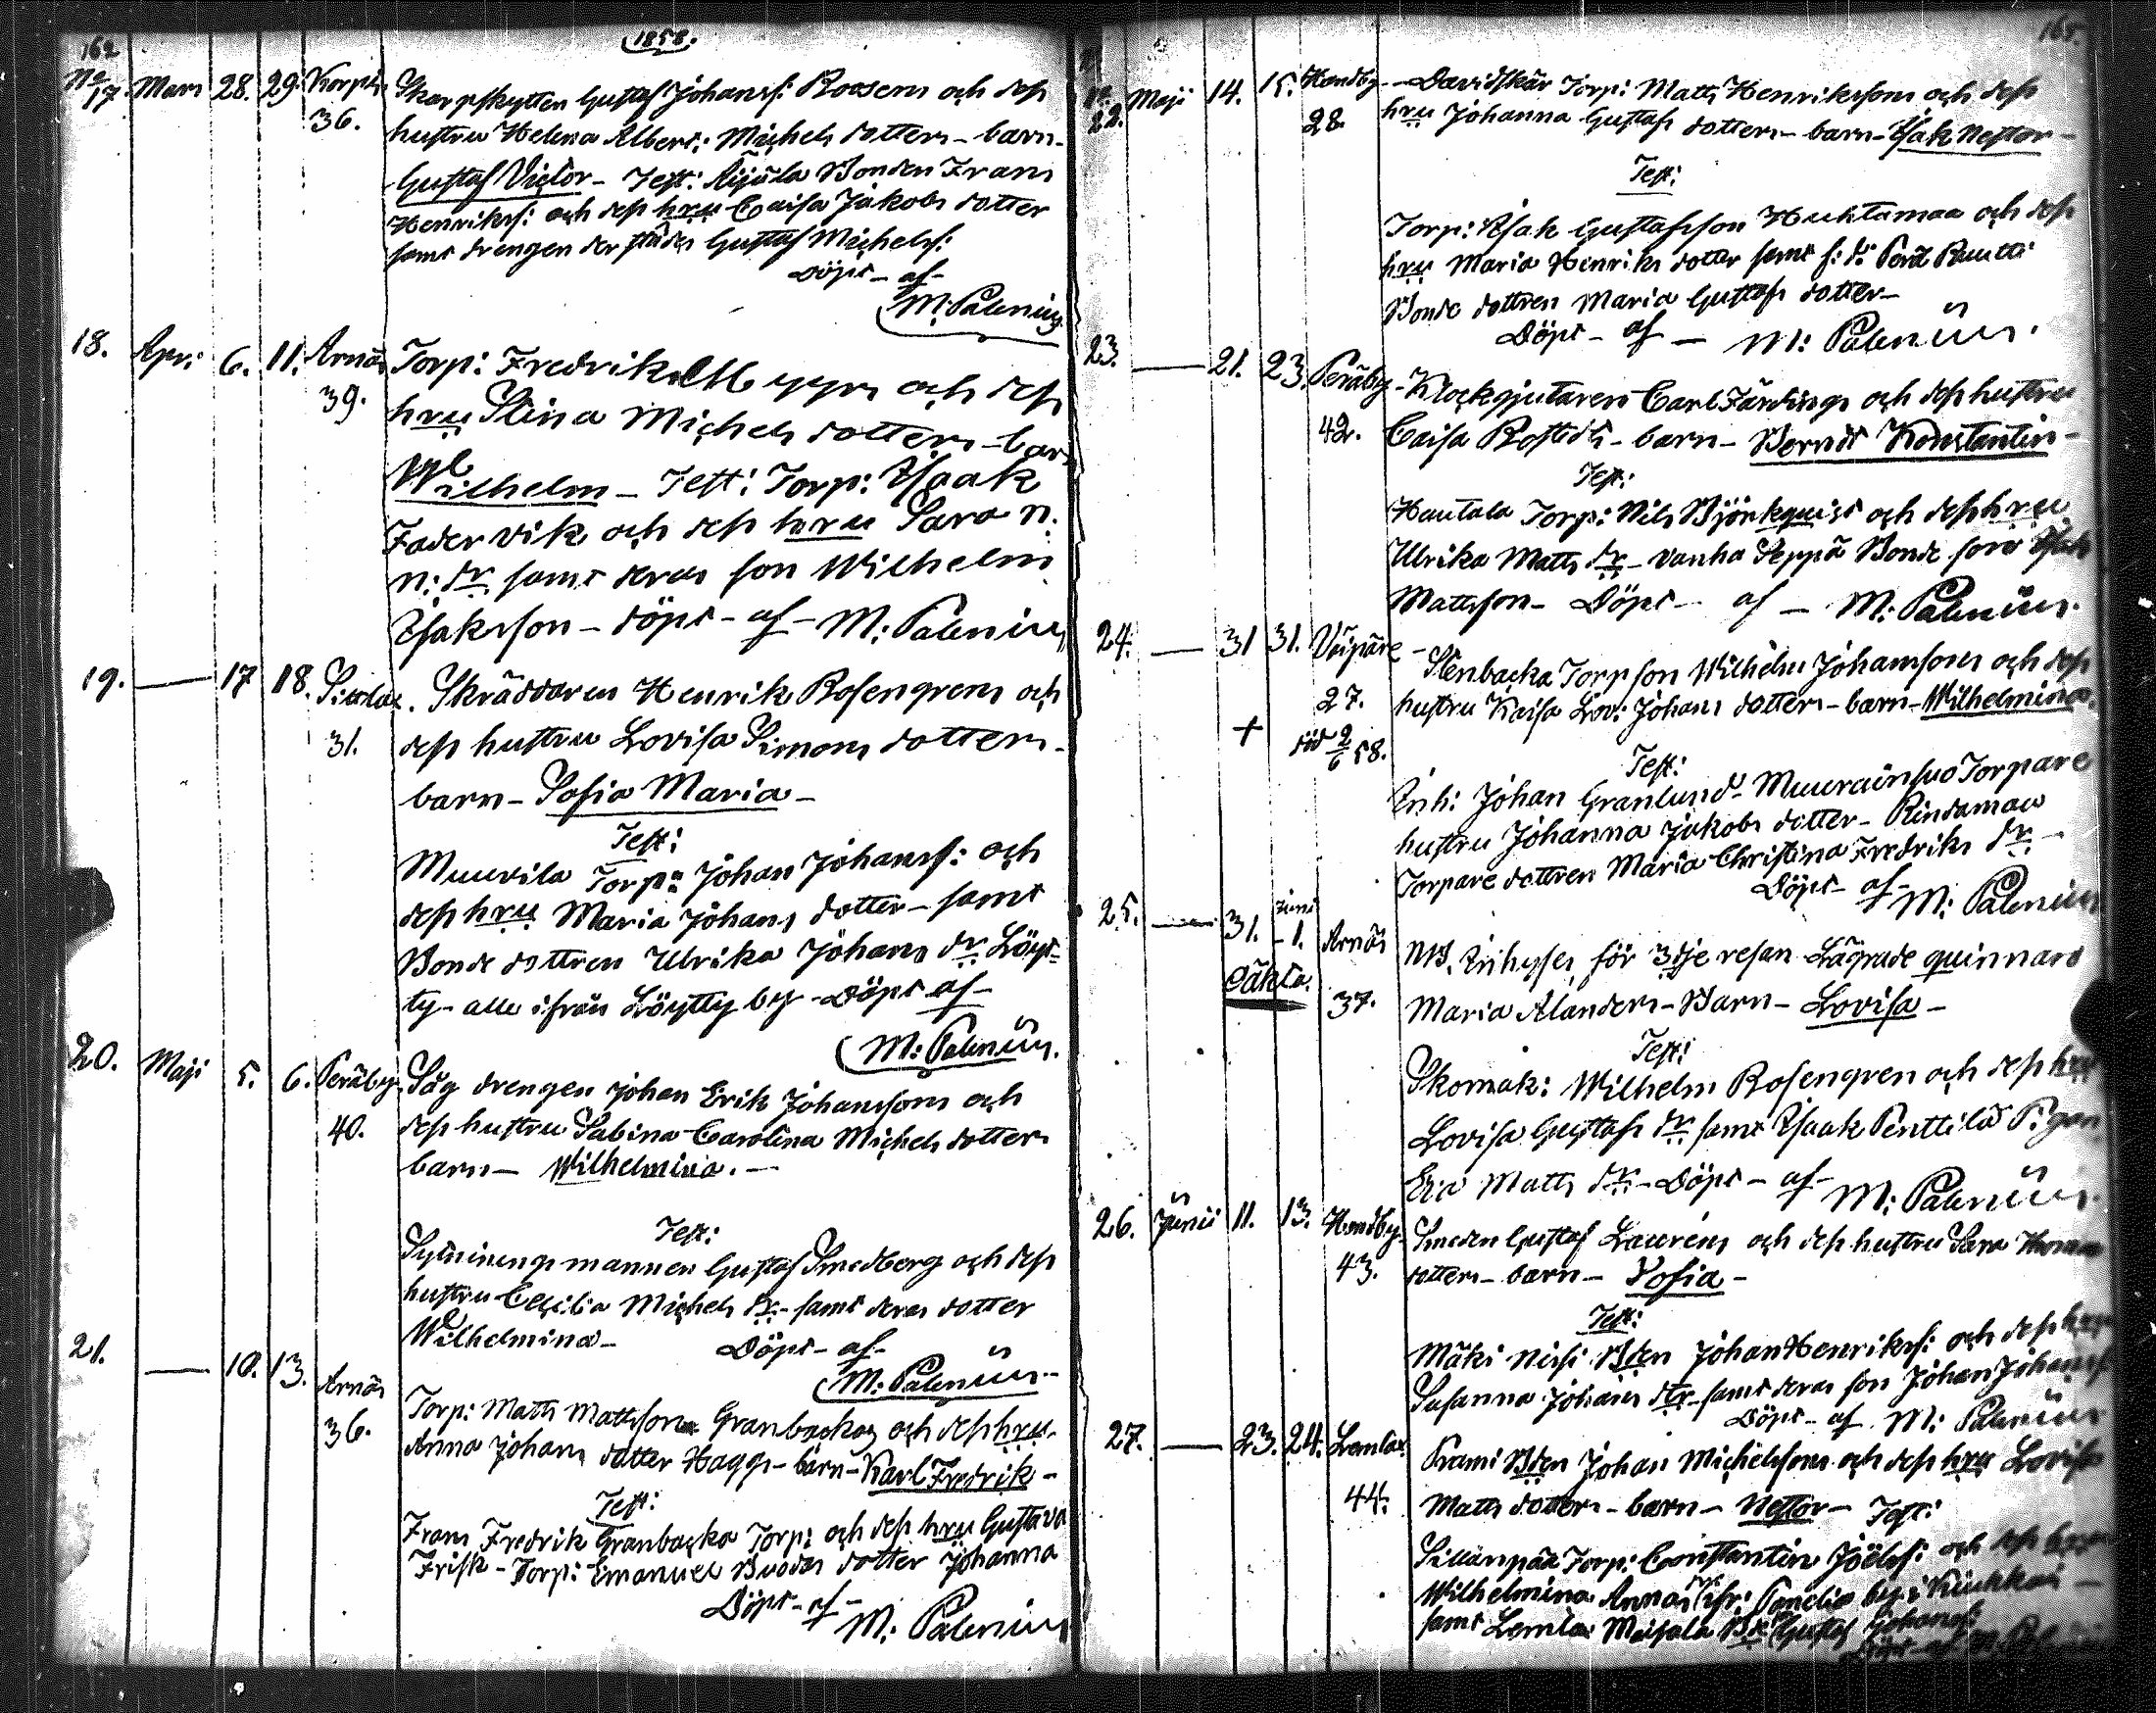 162
1858.
No 17. Mars 28. 29. Korpi
36.
Skarpskytten Gustaf Johanss: Roosen och dess
hustru Helena Albert: Michels dotter - barn -
Gustaf Victor - Test: Äijälä Bonden Frans
Henrikss: och dess hru Caisa Jakobs dotter
samt drengen der städes Gustaf Michelss:
Döpt - af -
M: Palenius
18. Apr: 6. 11. Arnäs
39.
Torp: Fredrik Myyrn och dess
hru Stina Michels dotter - barn
Wilhelm - Test: Torp: Isaak
Fadervik och dess hru Sara N.
N: dr samt deras son Wilhelm
Isaksson - döpt - af - M: Palenius
19. — 17 18.
31.
Skräddaren Henrik Rosengren och
dess hustru Lovisa Simons dotter -
barn - Sofia Maria -
Test:
Muurila Torp: Johan Johanss: och
dess hru Maria Johans dotter - samt
Bonde dottren Ulrika Johans dr Löyt=
ty - alle ifrån Löytty by - Döpt af -
M: Palenius.
20. Maji 5. 6. Peräby
40.
Såg drengen Johan Erik Johansson och
dess hustru Sabina Carolina Michels dotter
barn - Wilhelmina. -
Test:
Sytningsmannen Gustaf Smedberg och dess
hustru Cecilia Michels dr - samt deras dotter
Wilhelmina - Döpt - af -
M: Palenius -
21. — 10. 13. Arnäs
36.
Torp: Matts Mattsson Granbacka och dess hru
Anna Johans dotter Hagg - barn - Karl Fredrik -
Test:
Frans Fredrik Granbacka Torp: och dess hru Gustava
Frisk - Torp: Emanuel dotter Johanna
Döpt - af -
M: Palenius
165.
No 22. Maji 14. 15. Handby
28.
Davidskär Torp: Matts Henriksson och dess
hru Johanna Gustafs dotter - barn - Isak Nestor -
Test:
Torp: Isak Gustafsson Huhtamaa och dess
hru Maria Henriks dotter samt
Bonde dottren Maria Gustafs dotter -
Döpt - af - M: Palenius.
23. — 21. 23. Peräby
42.
Klockgjutaren Carl Färding och dess hustru
Caisa Rostedt - barn - Berndt Konstantin -
Test:
Hautala Torp: Nils Björkquist och dess hru
Ulrika Matts dr - Vanha Seppä Bonde son Isak
Mattsson - Döpt - af - M: Palenius.
24. — 31 31.
27.
+ död 2/6 58.
Stenbacka Torp son Wilhelm Johansson och dess
hustru Kaisa Lov: Johans dotter - barn - Wilhelmina.
Test:
Inh: Johan Granlund - Muurainsuo Torpare
hustru Johanna Jakobs dotter - Rindamaa
Torpare dottren Maria Christina Fredriks dr -
Döpt - af - M: Palenius
25. — 31. Juni 1. Arnäs
oäkta. 37.
NB. Inhyses för 3dje resan Lägrade quinnan
Maria Alander - Barn - Lovisa -
Test:
Skomak: Wilhelm Rosengren och dess hru
Lovisa Gustafs dr samt Isaak Penttilä Pigan
Eva Matts dr - Döpt - af - M: Palenius.
26. Junii 11. 13. Handby
43.
Smeden Gustaf Laurén och dess hustru Sara Thomas
dotter - barn - Sofia -
Test:
Mäki Nissi Bden Johan Henrikss: och dess hru
Susanna Johans dtr - samt deras son Johan Johanss
Döpt - af M: Palenius
27. — 23. 24. Lemlax
44.
Krami Bden Johan Michelsson och dess hru Lovisa
Matts dotter - barn - Nestor - Test:
Sillanpää Torp: Constantin Joëlss: och dess
Wilhelmina Annas dr ifr: by i Kiukkais -
samt Gustaf Johanss:
Döpt - af M: Palenius